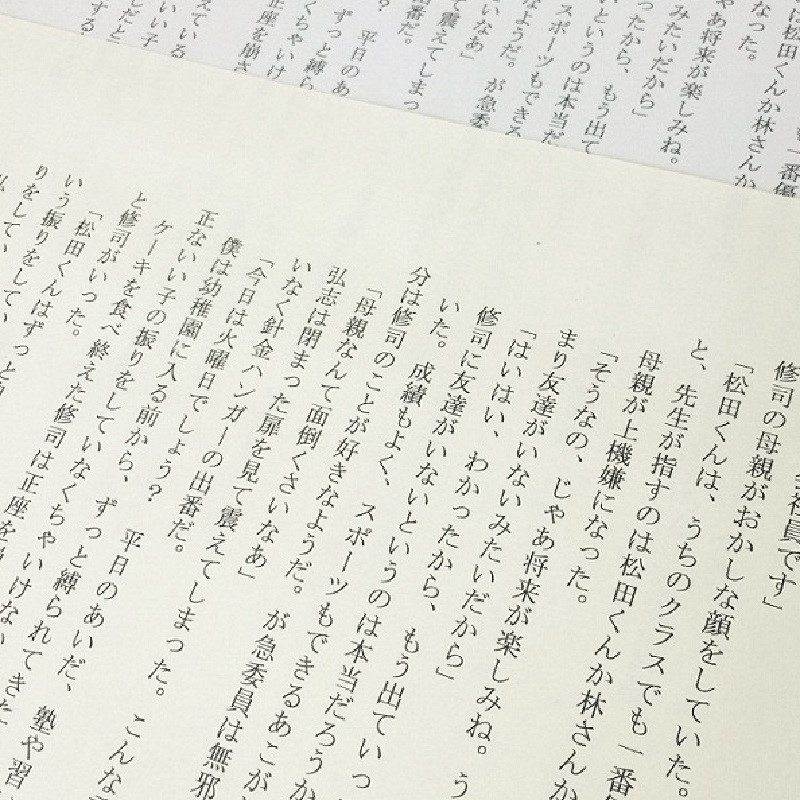 も一番優
は松田くんか林さんか
なった。
ゃあ将来が楽しみね。
みたいだから」
ったから、もう出て
いというのは本当だ
スポーツもできる
なようだ。が急委
いなあ」
て震えてしまっ
番だ。
? 平日のあ
ずっと縛ら
くちゃいけ
正座を崩さ
えている
いい子
しだと
する
社員です」
修司の母親がおかしな顔をしていた。
「松田くんは、うちのクラスでも一番
と、先生が指すのは松田くんか林さんか
母親が上機嫌になった。
「そうなの、じゃあ将来が楽しみね。う
まり友達がいないみたいだから」
「はいはい、わかったから、もう出ていっ
修司に友達がいないというのは本当だろうか
いた。成績もよく、スポーツもできるあこが
分は修司のことが好きなようだ。が急委員は無邪
「母親なんて面倒くさいなあ」
弘志は閉まった扉を見て震えてしまった。こんな
いなく針金ハンガーの出番だ。
「今日は火曜日でしょう? 平日のあいだ、塾や習
僕は幼稚園に入る前から、ずっと縛られてきた
正ないい子の振りをしていなくちゃいけない
ケーキを食べ終えた修司は正座を崩
と修司がいった。
「松田くんはずっと
いう振りをしてい
りをしてい